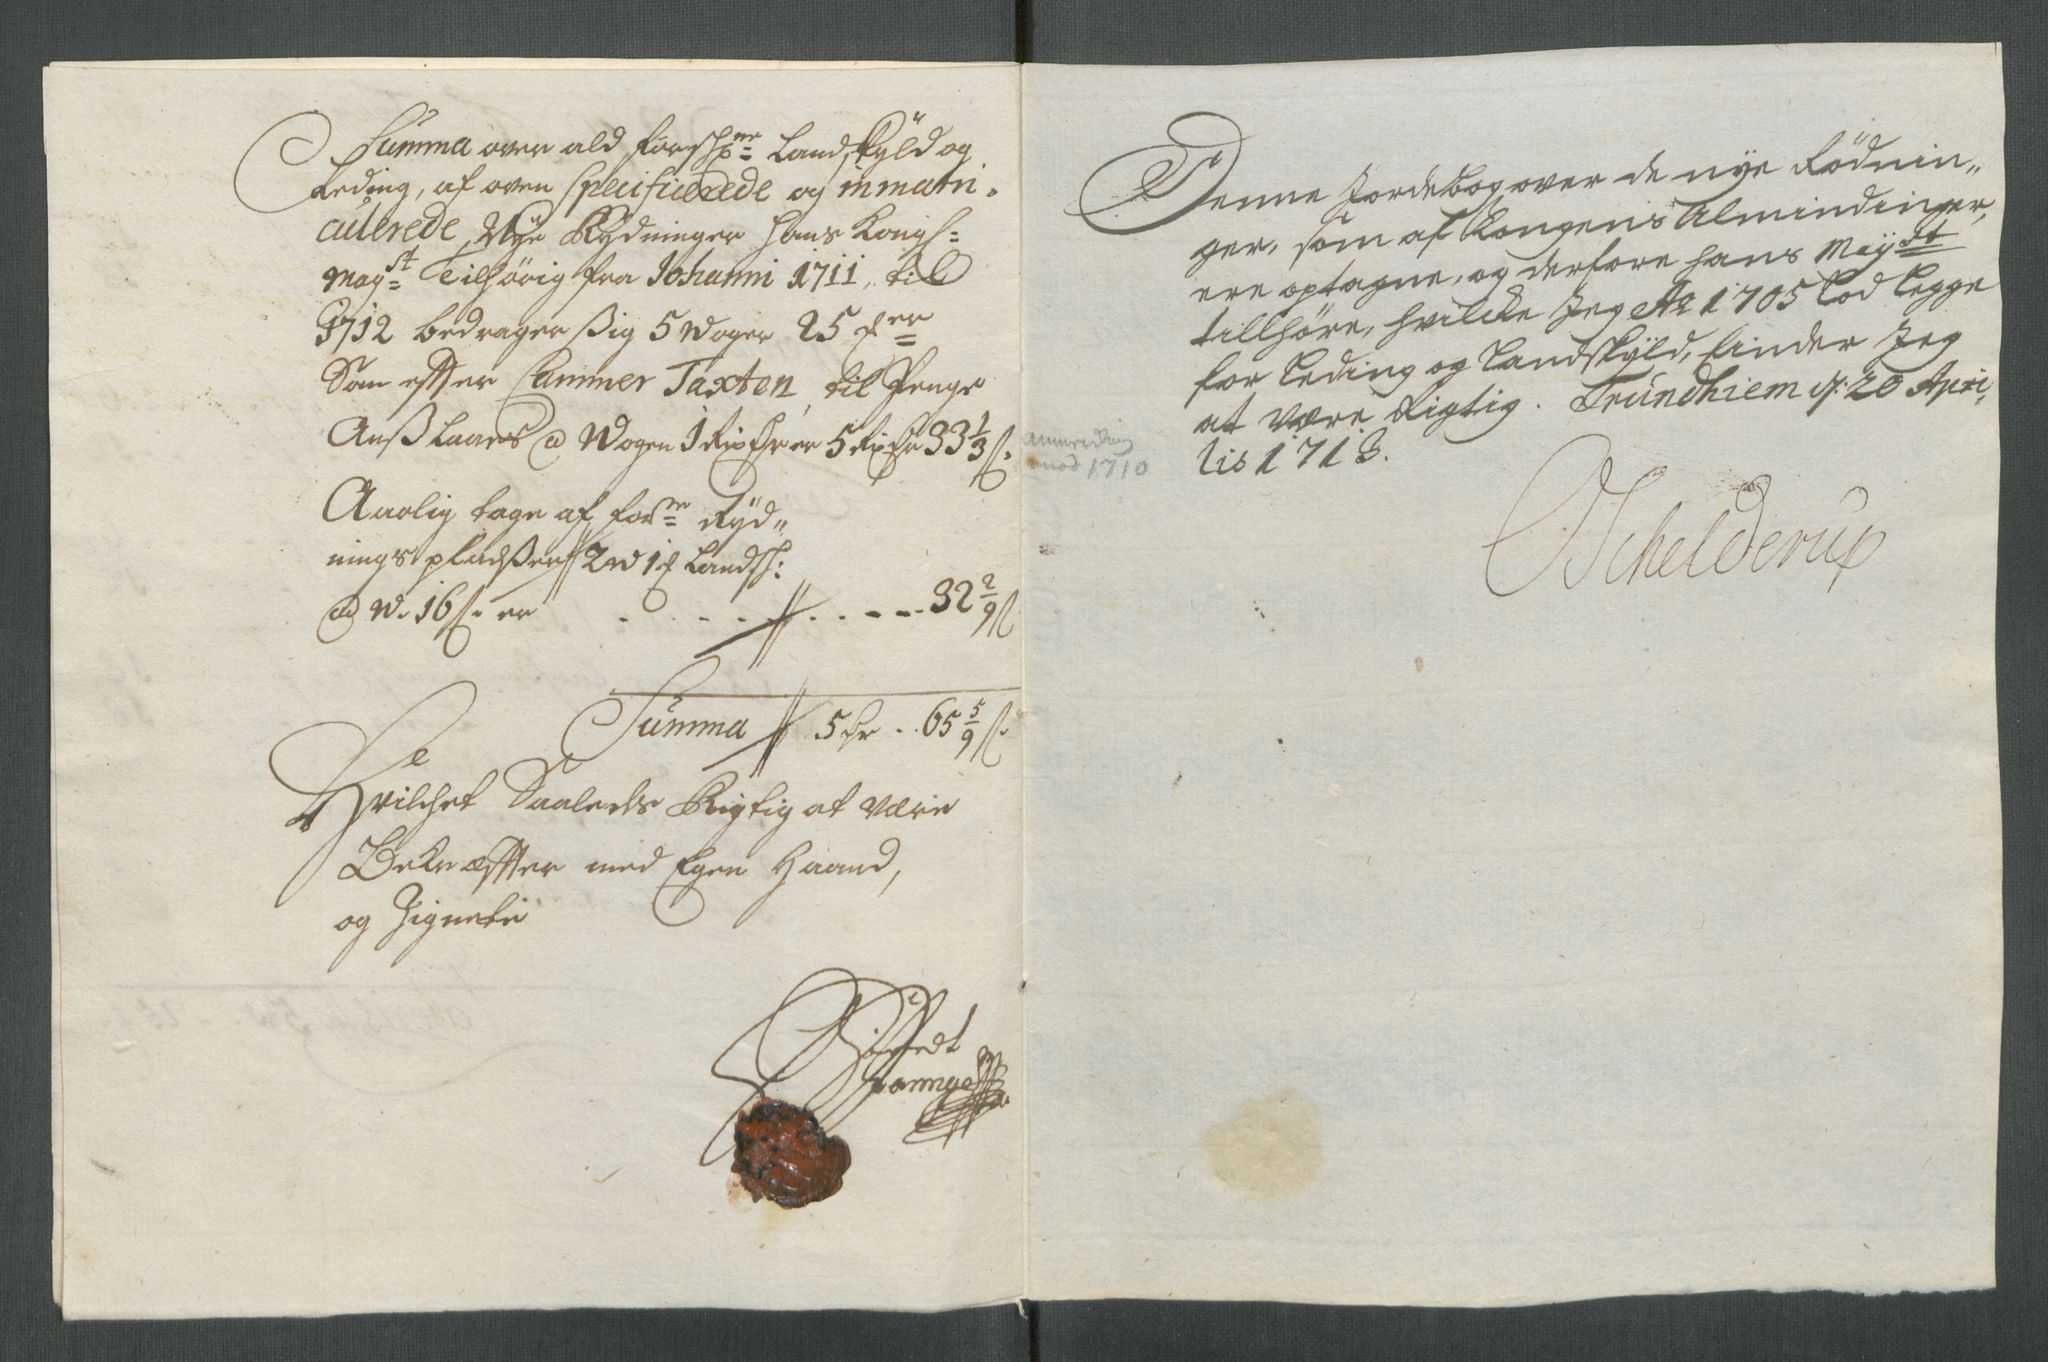 Summa over ald forschr:ne Landskÿld og
Leding, af oven Specificerede og immatri=
culerede Nÿe Rydninger hans Kongl=
Maÿst Tilhörig fra Johanni 1711, til
1712 bedrager sig 5 Woger 25 ℔er
Som effter Cammer Taxten til Penge
Anslaaes a Wogen 1 Rixdlr er 5 Rixdr 33 1/3 ß.
Aarlig tage af forne Rÿd„
nings pladser 2 w 1 ℔ Landsk:
ad W. 16 ß. er . . . . . . 32 2/9 ß
Summa 5 dr . . 65 5/9 ß.
Hvilchet Saaledes Rigtig at være
Bekræffter med Egen Haand,
og Zignete
Sifvedt
anmerdning
imod 1710
Denne Jordebog over de nye Rödnin„
ger, som af Kongens Almindinger,
ere optagne, og derfore hans Maÿst
tillhöre, hvilcke Jeg Ao 1705 lod legge
for Leding og Landskÿld, finder Jeg
at være Rigtig. Trundhiem d: 20 Apri„
lis 1713.
Schelderup